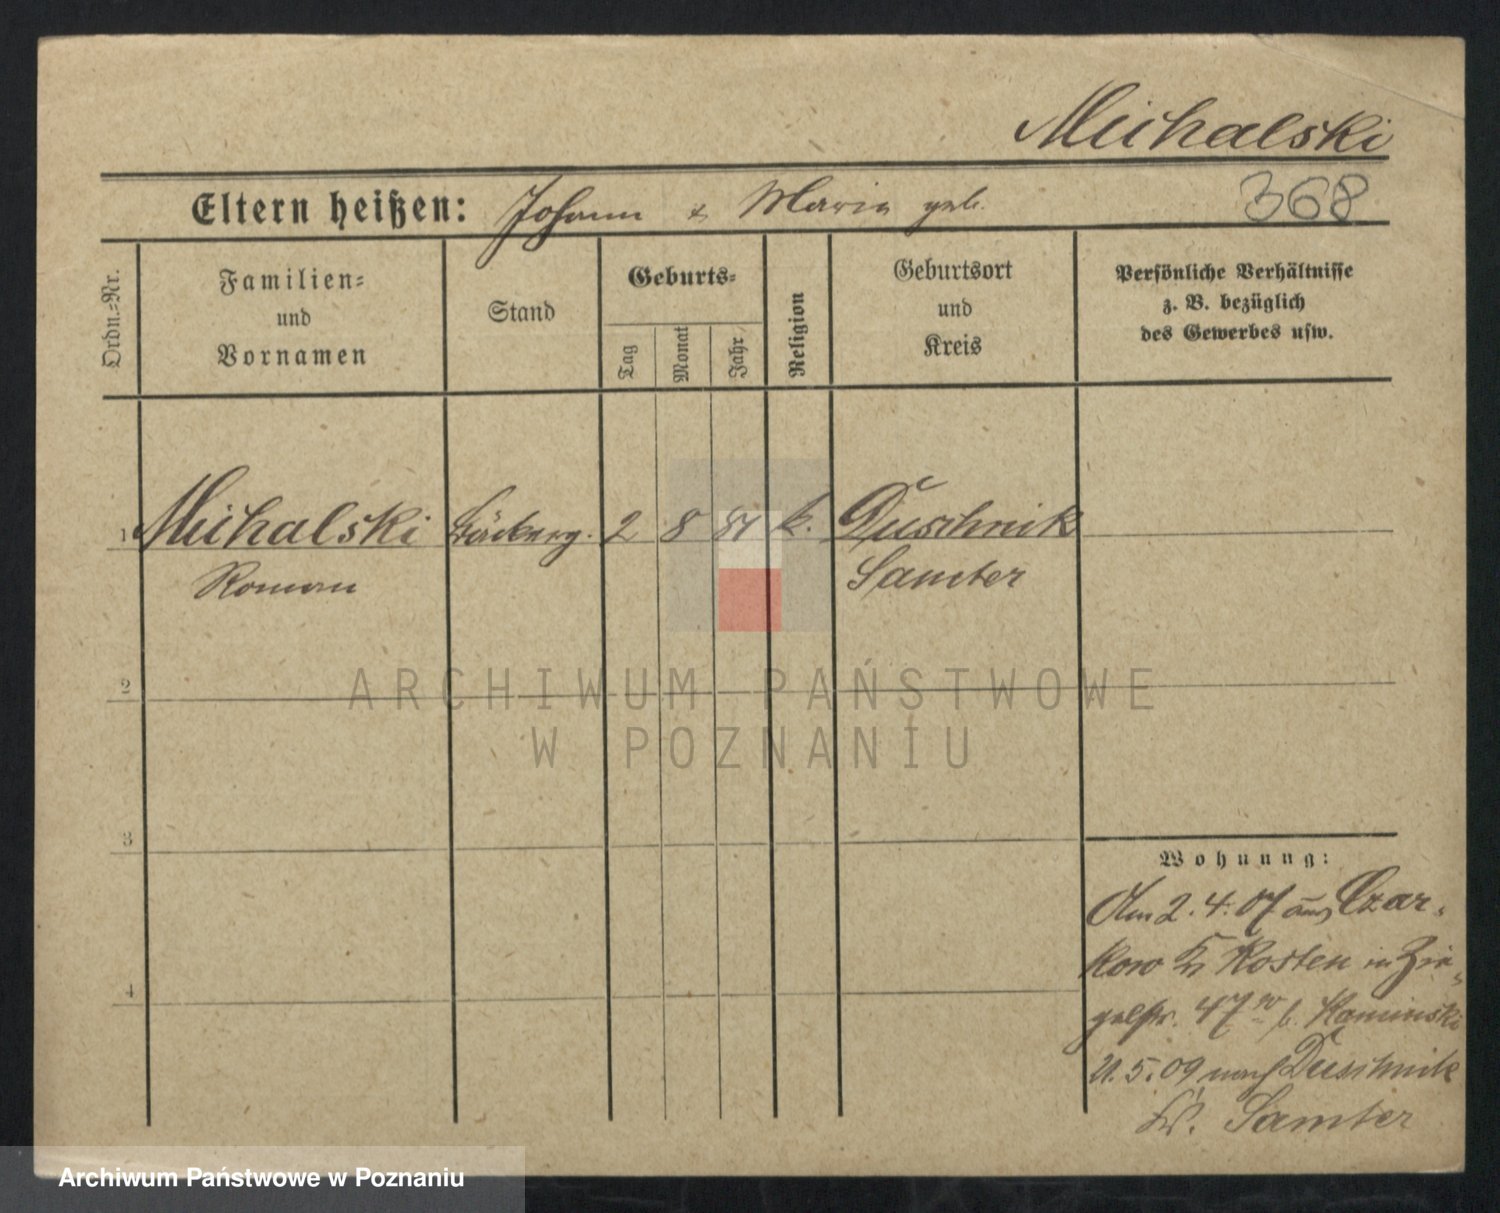 Michalski
Eltern heißen: Johann & Maria geb.
368
Ordn.=Nr.
Familien=
und
Vornamen
Stand
Geburts=
Tag
Monat
Jahr
Religion
Geburtsort
und
Kreis
Persönliche Verhältnisse
z. B. bezüglich
des Gewerbes usw.
1 Michalski Bäckerg. 2 8 81 k. Duschnik
Roman Samter
2
ARCHIWUM PAŃSTWOWE
W POZNANIU
3
Wohnung:
Am 2.4.07 aus Czar-
kow Kr Kosten in Zie-
gelstr. 47 b. Kaminski
21.5.09 nach Duschnik
Kr. Samter
4
Archiwum Państwowe w Poznaniu